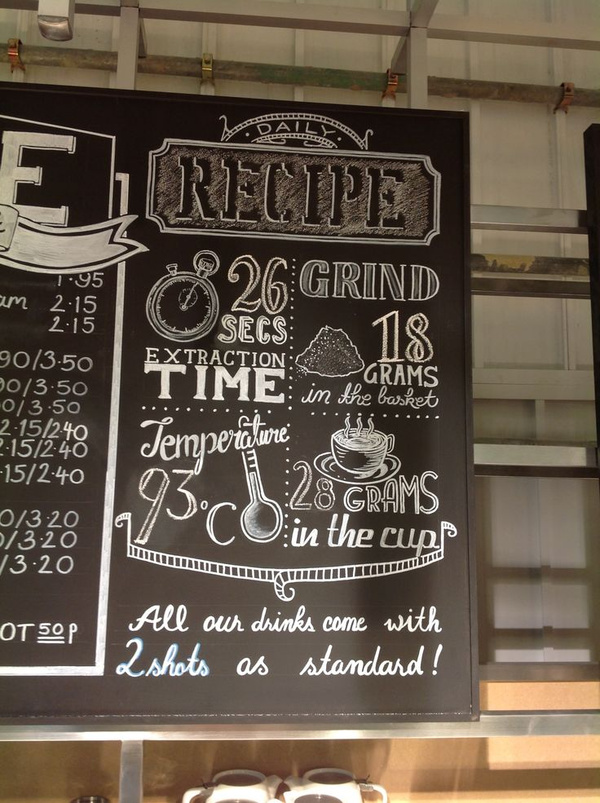 E
1.95
am 2.15
2.15
90/3.50
0/3.50
0/3.50
2.15/2.40
2.15/2.40
.15/2.40
0/3.20
0/3.20
/3.20
OT 50P
DAILY
RECIPE
26
SECS
EXTRACTION
TIME
GRIND
18
GRAMS
in the basket
Temperature
93°C
28 GRAMS
in the cup
All our drinks come with
2 shots as standard!